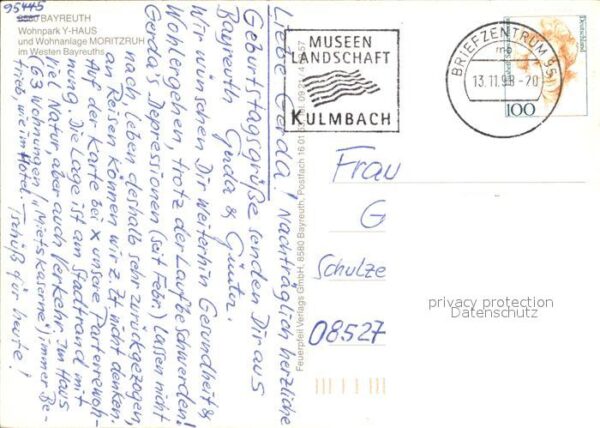 95445
8580 BAYREUTH
Wohnpark Y-HAUS
und Wohnanlage MORITZRUH
im Westen Bayreuths
Liebe Gerda! Nachträglich herzliche
Geburtstagsgrüße senden Dir aus
Bayreuth Gerda & Günter.
Wir wünschen Dir weiterhin Gesundheit &
Wohlergehen, trotz der Laufbeschwerden!
Gerda's Depressionen (seit Febr.) lassen nicht
nach, leben deshalb sehr zurückgezogen,
an Reisen können wir z. Zt. nicht denken.
Auf der Karte bei x unsere Parterrewoh-
nung. Die Lage ist am Stadtrand mit
viel Natur, aber auch Verkehr. Im Haus
(63 Wohnungen / "Mietskaserne") immer Be-
trieb, wie im Hotel. Tschüß für heute!
Feuerpfeil Verlags GmbH, 8580 Bayreuth, Postfach 16 01
MUSEEN
LANDSCHAFT
KULMBACH
BRIEFZENTRUM 95
mb
13.11.98-20
Deutschland
100
Frau
G
Schulze
08527
privacy protection
Datenschutz